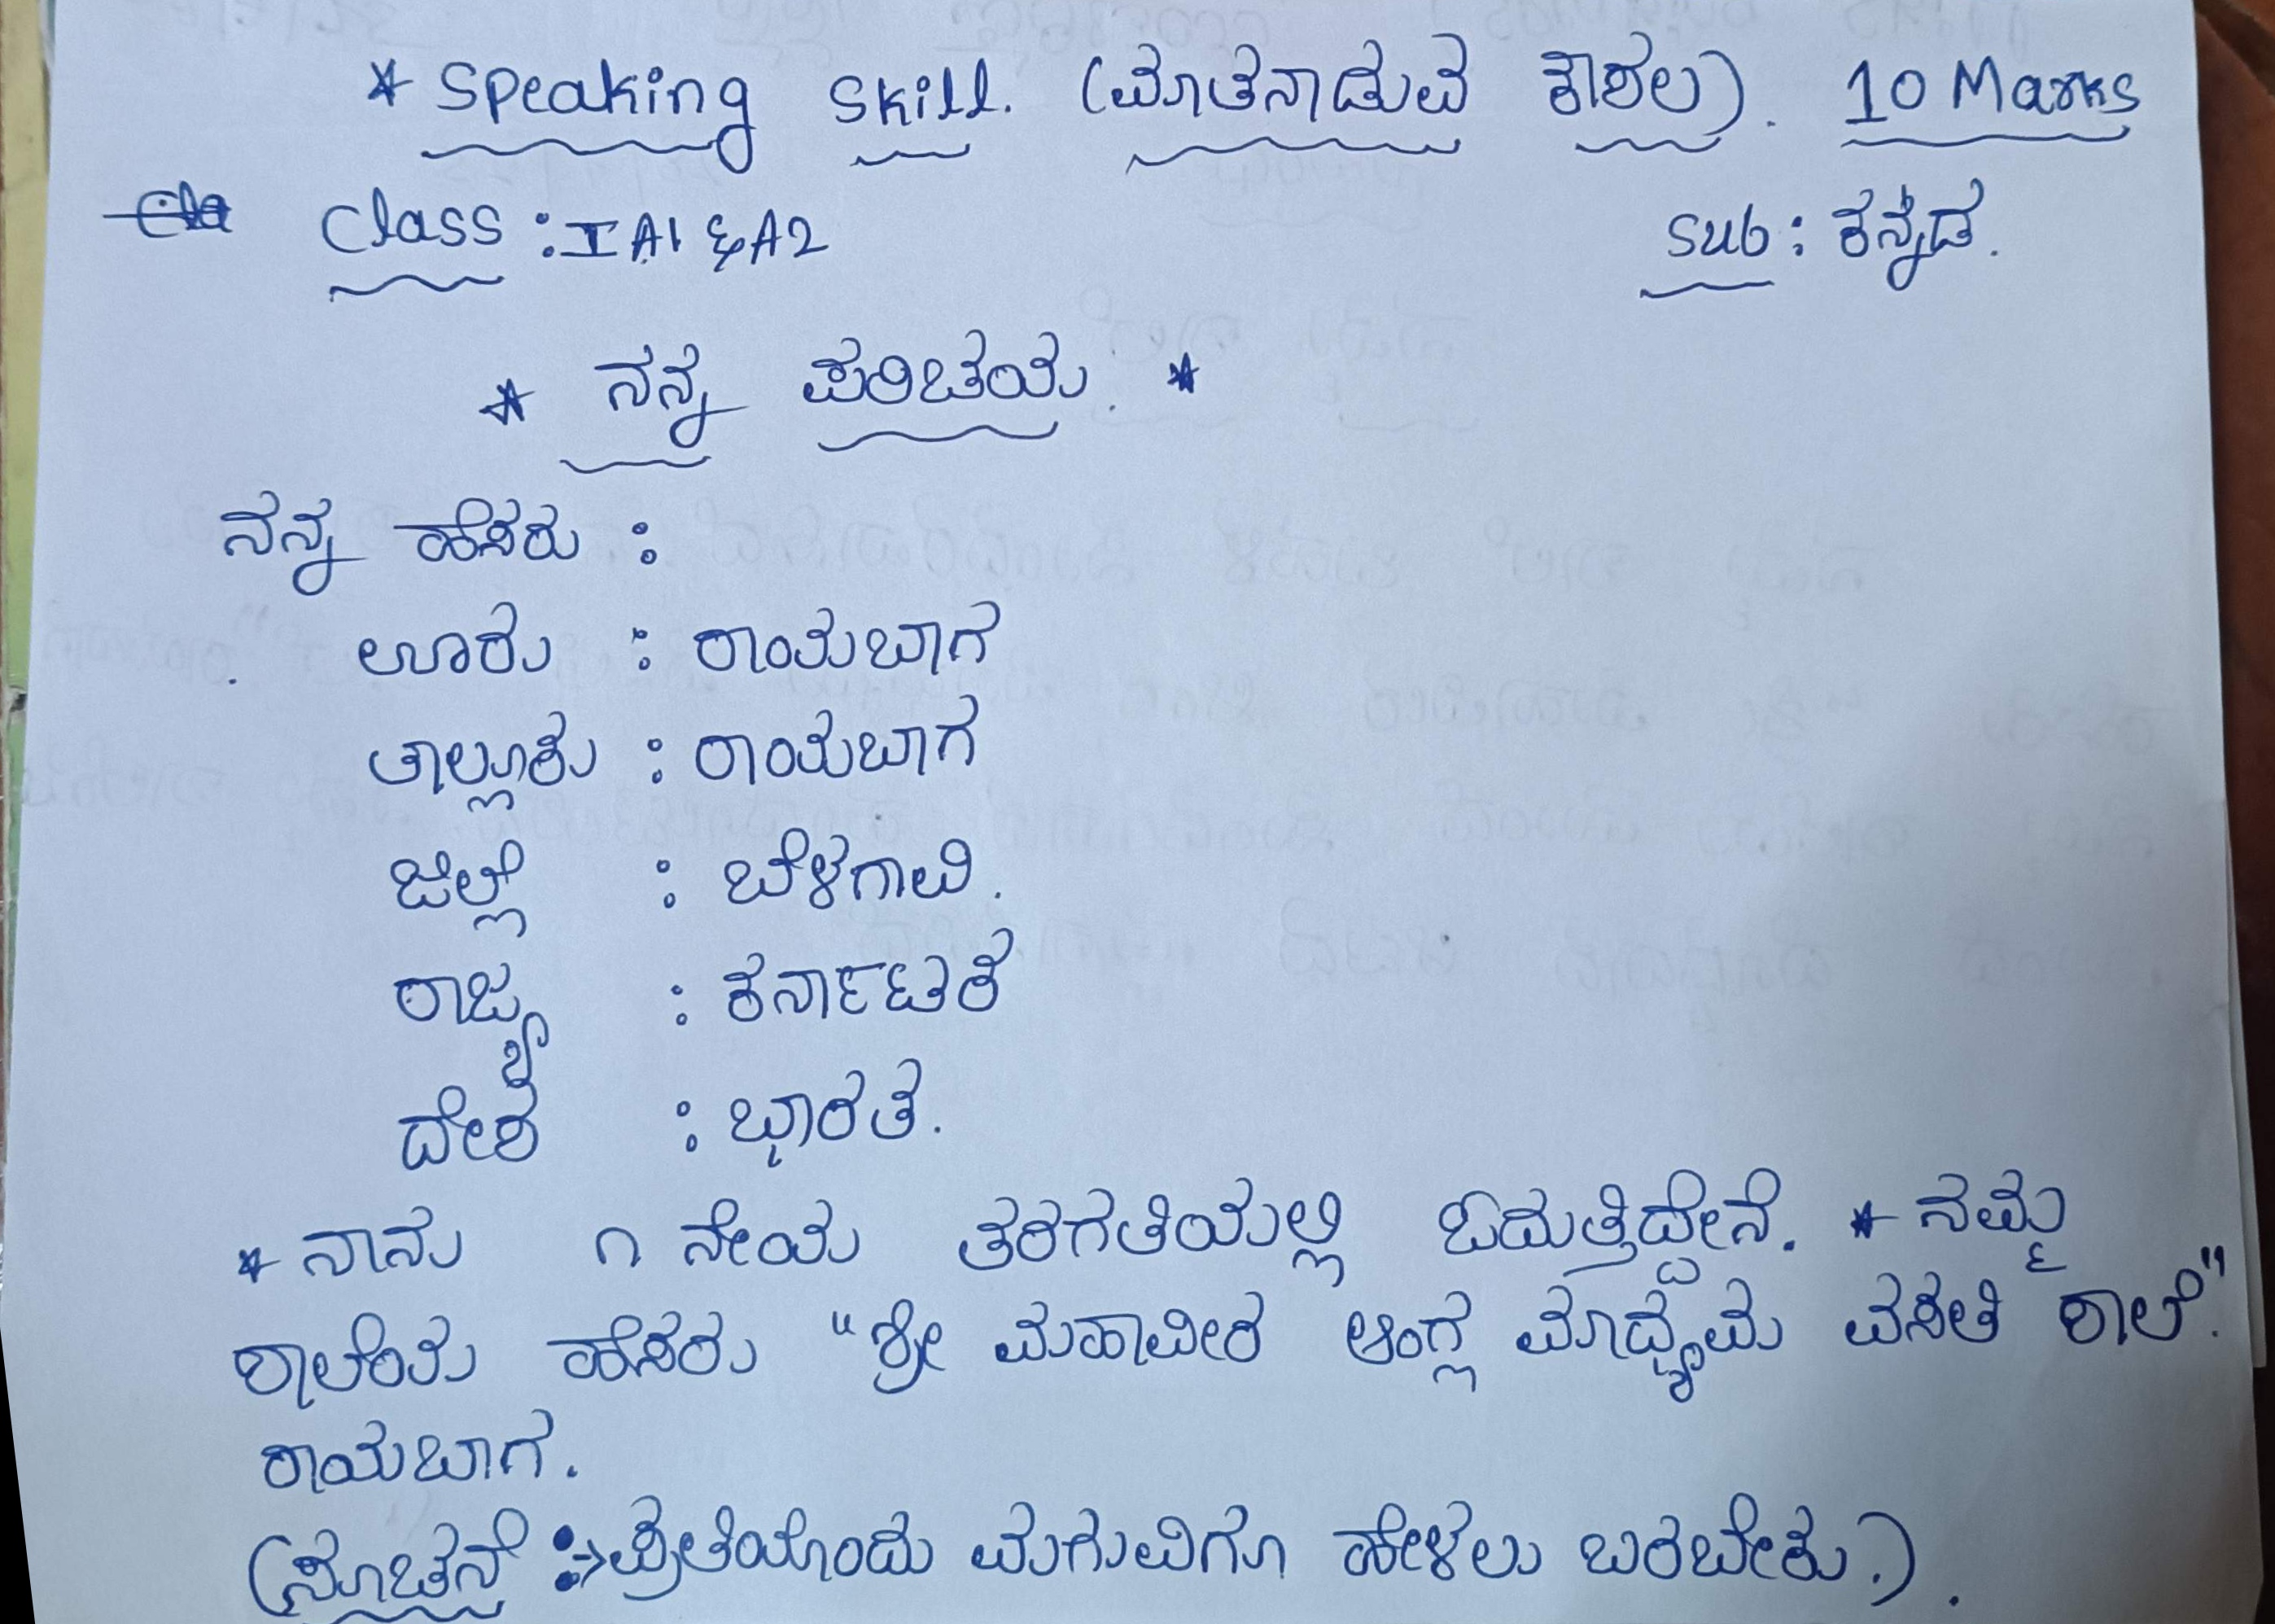 * Speaking Skill. (ಮಾತನಾಡುವ ಕೌಶಲ). 10 Marks
Class : I A1 & A2 Sub : ಕನ್ನಡ.
* ನನ್ನ ಪರಿಚಯ. *
ನನ್ನ ಹೆಸರು :
ಊರು : ರಾಯಬಾಗ
ತಾಲ್ಲೂಕು : ರಾಯಬಾಗ
ಜಿಲ್ಲೆ : ಬೆಳಗಾವಿ.
ರಾಜ್ಯ : ಕರ್ನಾಟಕ
ದೇಶ : ಭಾರತ.
* ನಾನು ೧ ನೇಯ ತರಗತಿಯಲ್ಲಿ ಓದುತ್ತಿದ್ದೇನೆ. * ನಮ್ಮ
ಶಾಲೆಯ ಹೆಸರು "ಶ್ರೀ ಮಹಾವೀರ ಆಂಗ್ಲ ಮಾಧ್ಯಮ ವಸತಿ ಶಾಲೆ."
ರಾಯಬಾಗ.
(ಸೂಚನೆ :→ ಪ್ರತಿಯೊಂದು ಮಗುವಿಗೂ ಹೇಳಲು ಬರಬೇಕು.).